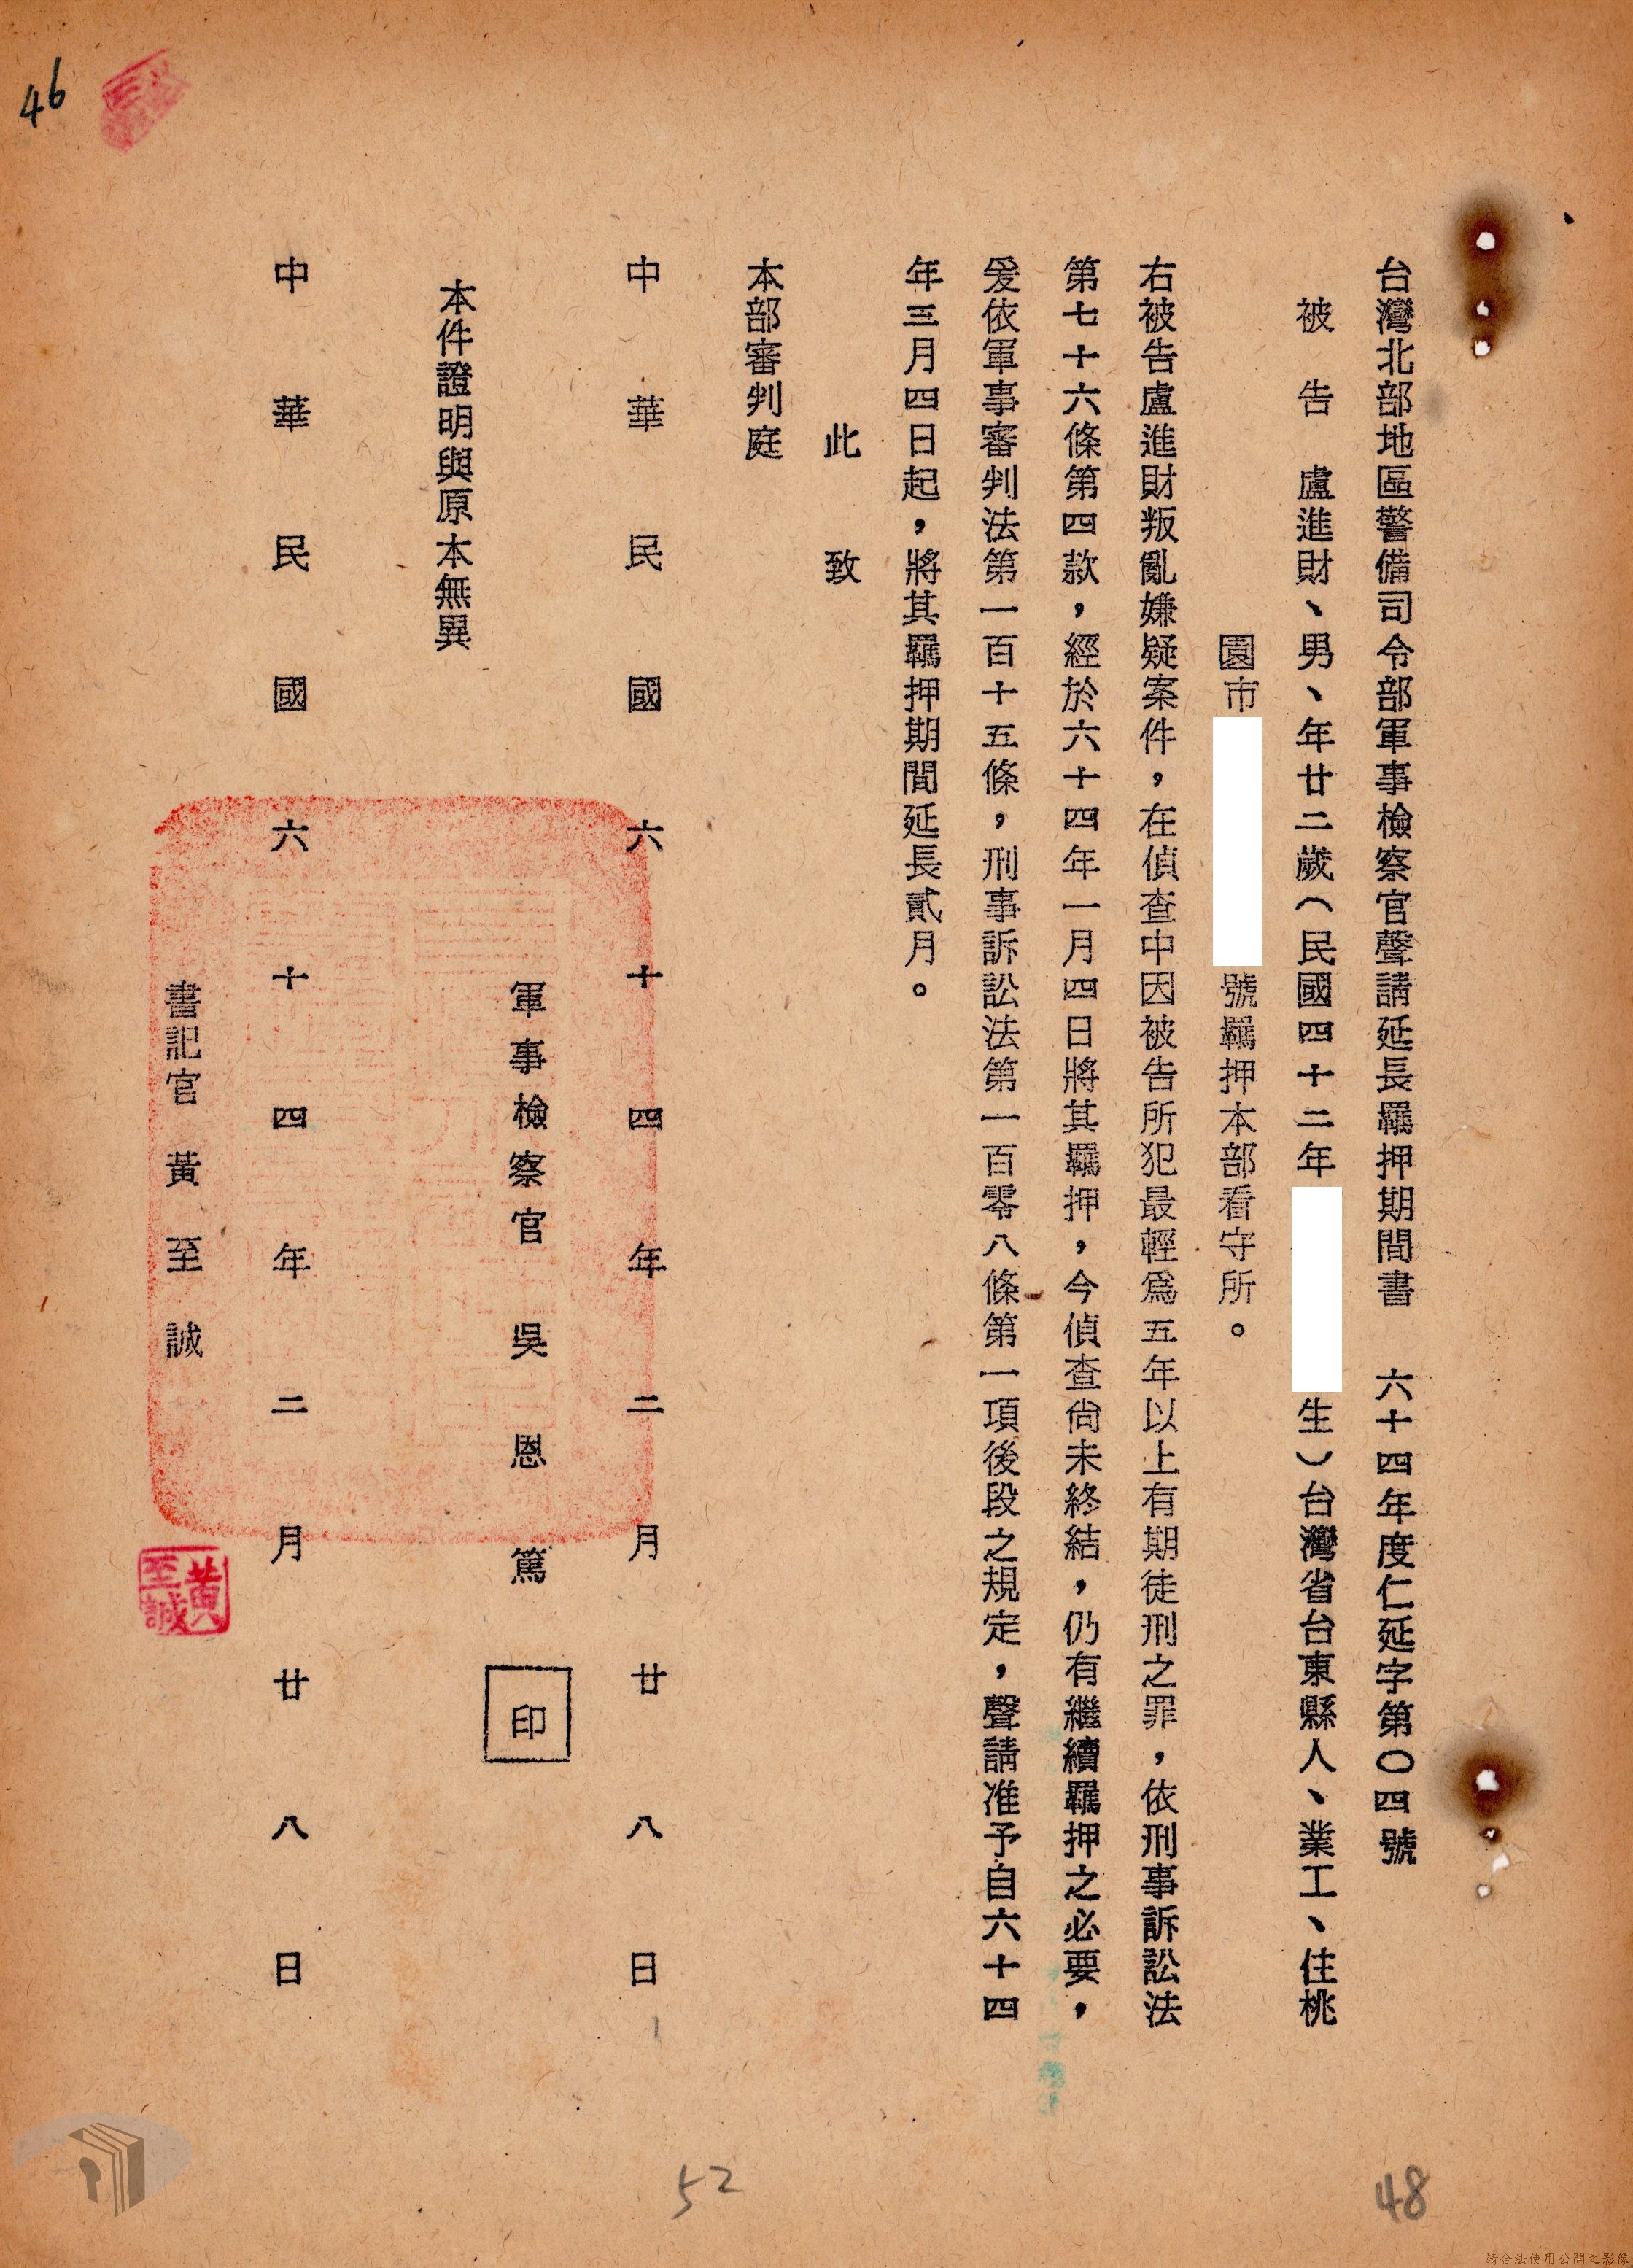 台灣北部地區警備司令部軍事檢察官聲請延長羈押期間書 六十四年度仁延字第〇四號
被告 盧進財、男、年廿二歲（民國四十二年
生）台灣省台東縣人、業工、住桃
園市
號羈押本部看守所。
右被告盧進財叛亂嫌疑案件，在偵查中因被告所犯最輕為五年以上有期徒刑之罪，依刑事訴訟法
第七十六條第四款，經於六十四年一月四日將其羈押，今偵查尚未終結，仍有繼續羈押之必要，
爰依軍事審判法第一百十五條，刑事訴訟法第一百零八條第一項後段之規定，聲請准予自六十四
年三月四日起，將其羈押期間延長貳月。
此致
本部審判庭
中華民國六十四年二月廿八日
軍事檢察官 吳恩篤 印
本件證明與原本無異
中華民國六十四年二月廿八日
書記官 黃至誠
黃至誠
46
52
48
請合法使用公開之影像